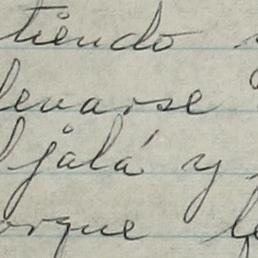 tiendo y
levarse
jalá y
orque